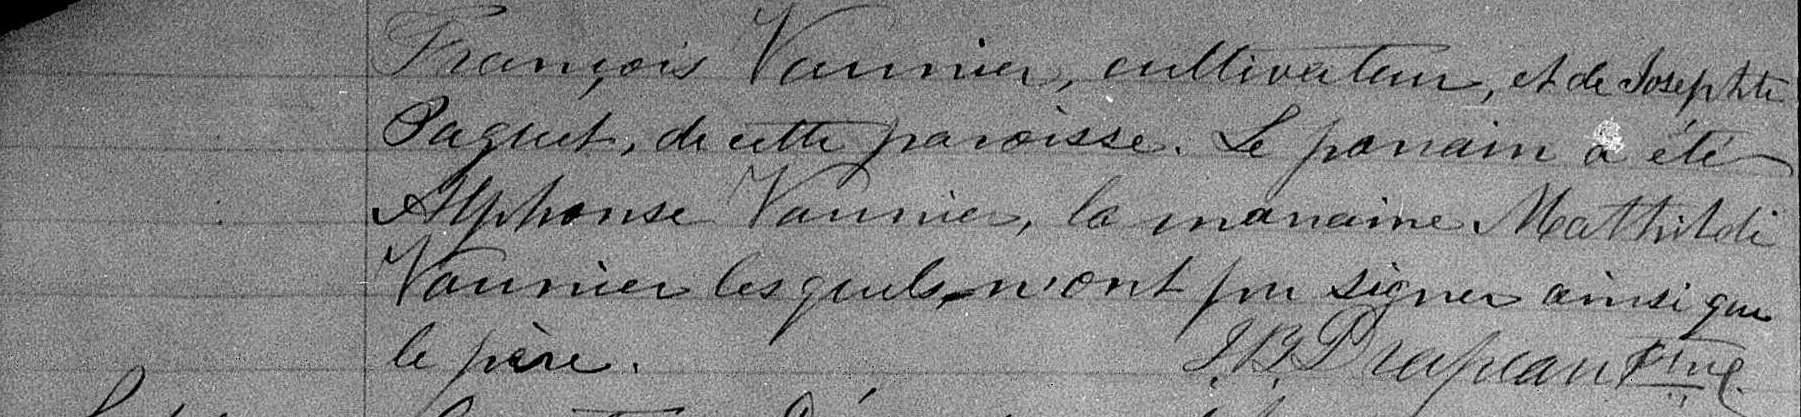 François Vannier, cultivateur, et de Josephte
Paquet, de cette paroisse. Le parrain a été
Alphonse Vannier, la marraine Mathilde
Vannier lesquels n'ont pu signer ainsi que
le père. J. B. Drapeau Ptre